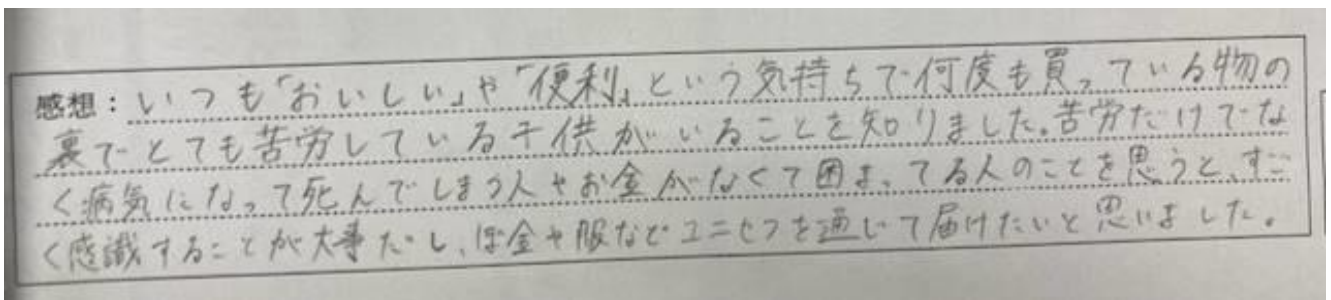 感想：いつも「おいしい」や「便利」という気持ちで何度も買っている物の
裏でとても苦労している子供がいることを知りました。苦労だけでな
く病気になって死んでしまう人やお金がなくて困まってる人のことを思うと、すご
く感識することが大事だし、ぼ金や服などユニセフを通じて届けたいと思いました。